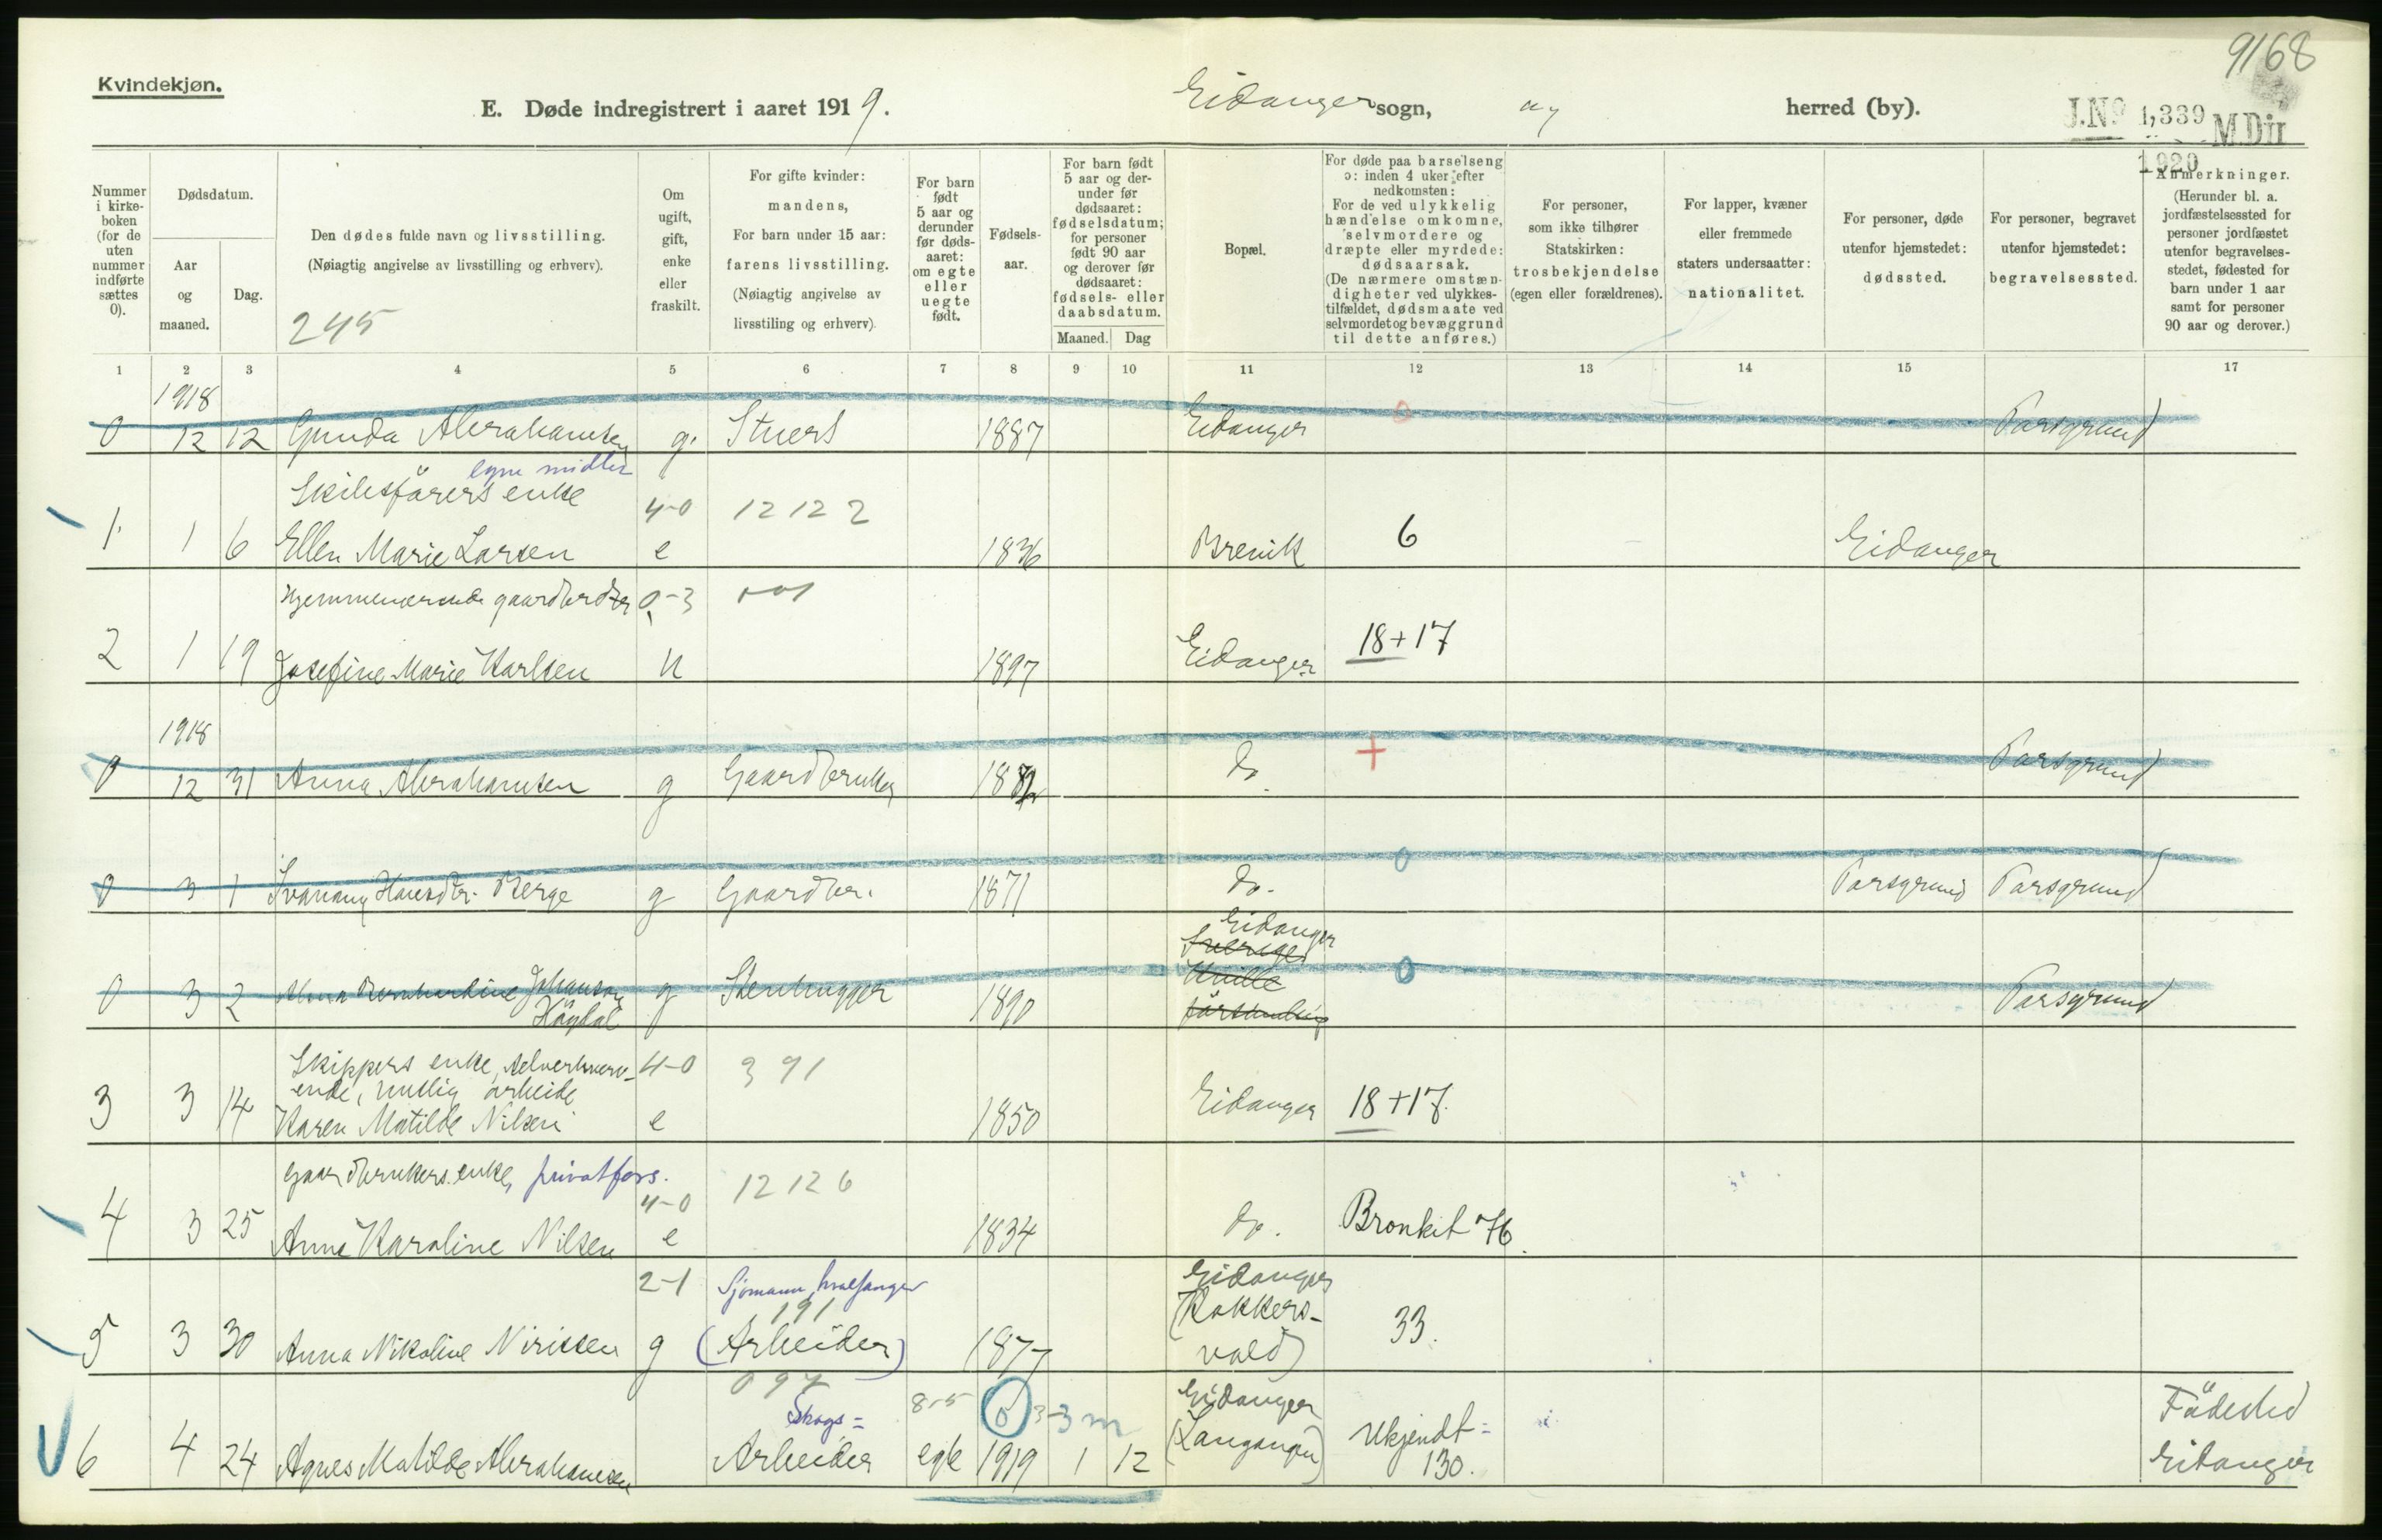 9168
Kvindekjøn.
E. Døde indregistrert i aaret 1919.
Eidanger sogn, og herred (by).
J.Nº 1,339 M.Dir
1920
Nummer i kirke-boken (for de uten nummer indførte sættes 0).
Dødsdatum.
Aar og maaned.
Dag.
Den dødes fulde navn og livsstilling.
(Nøiagtig angivelse av livsstilling og erhverv).
245
Om ugift, gift, enke eller fraskilt.
For gifte kvinder: mandens,
For barn under 15 aar: farens livsstilling.
(Nøiagtig angivelse av livsstiling og erhverv).
For barn født 5 aar og derunder før døds-aaret: om egte eller uegte født.
Fødsels-aar.
For barn født 5 aar og der-under før dødsaaret: fødselsdatum; for personer født 90 aar og derover før dødsaaret: fødsels- eller daabsdatum.
Maaned. Dag
Bopæl.
For døde paa barselseng ɔ: inden 4 uker efter nedkomsten:
For de ved ulykkelig hændelse omkomne, selvmordere og dræpte eller myrdede: dødsaarsak.
(De nærmere omstæn-digheter ved ulykkes-tilfældet, dødsmaate ved selvmordet og bevæggrund til dette anføres.)
For personer, som ikke tilhører Statskirken: trosbekjendelse (egen eller forældrenes).
For lapper, kvæner eller fremmede staters undersaatter: nationalitet.
For personer, døde utenfor hjemstedet: dødssted.
For personer, begravet utenfor hjemstedet: begravelsessted.
Anmerkninger.
(Herunder bl. a. jordfæstelsessted for personer jordfæstet utenfor begravelses-stedet, fødested for barn under 1 aar samt for personer 90 aar og derover.)
1 2 3 4 5 6 7 8 9 10 11 12 13 14 15 17
1918
0 12 12 Gunda Abrahamsen g. Stuert 1887 Eidanger 0 Porsgrund
egne midler
Skibsförers enke 4-0 12 12 2
1. 1 6 Ellen Marie Larsen e 1836 Brevik 6 Eidanger
Hjemmeværende gaardbrdtr 0-3
2 1 19 Josefine Marie Karlsen u 1897 Eidanger 18+17
1918
0 12 31 Anna Abrahamsen g Gaardbruker do + Porsgrund
0 3 1 Hansdtr. Berge g Gaardbr. 1871 do. 0 Porsgrund Porsgrund
Eidanger
Sverige
0 3 2 Alma Bernhardine Johanson g Stenhugger 1890 0 Porsgrund
Högdal
Skippers enke, selverhverv- 4-0 3 91
ende, huslig arbeide
3 3 14 Karen Matilde Nilsen e 1850 Eidanger 18+17.
Gaardbrukers enke, privatfors. 4-0 12 12 6
4 3 25 Anne Karoline Nilsen e 1834 do. Bronkit 76.
2-1 Sjømann, hvalfanger Eidanger
191 (Kokkers-
5 3 30 Anna Nikoline Nirissen g (Arbeider) 1877 vold) 33.
097 8-5 0 3-3 m Eidanger Födested
Skogs=
6 4 24 Agnes Matilde Abrahamsen Arbeider egte 1919 1 12 (Langangen) Ukjendt= 130. Eidanger